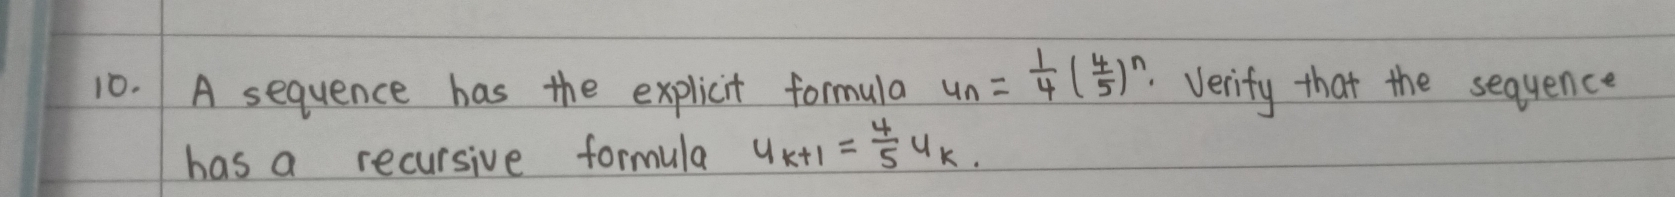 10. A sequence has the explicit formula un = 1/4 (4/5)^n. Verify that the sequence
has a recursive formula u_{k+1} = 4/5 u_k.